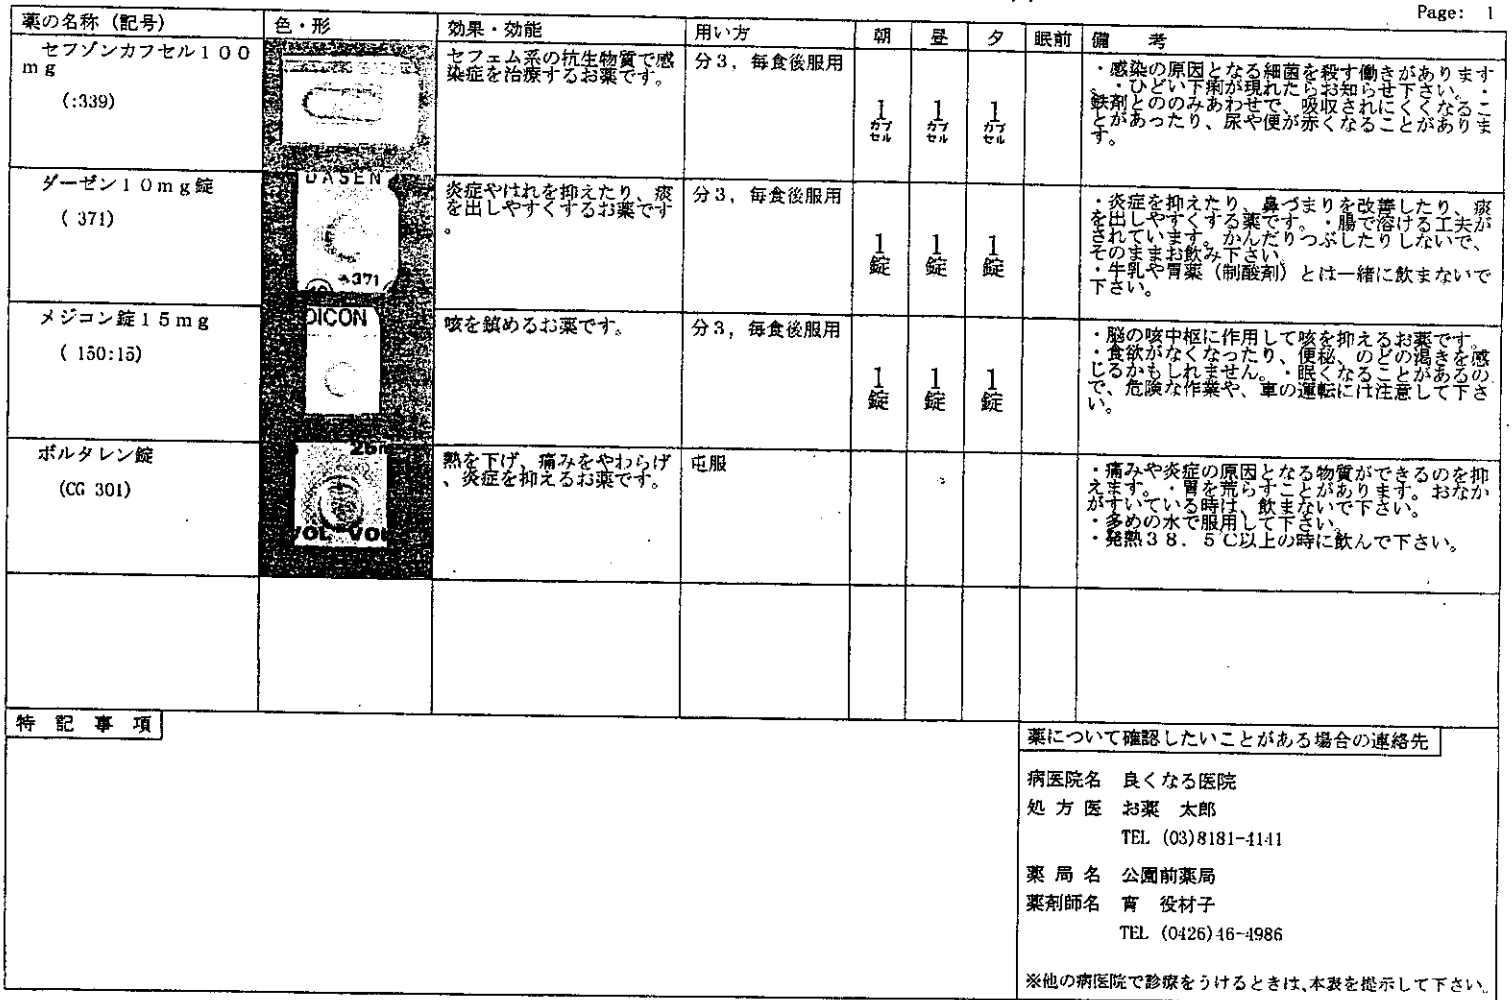 Page: 1
薬の名称（記号）
色・形
効果・効能
用い方
朝
昼
夕
眠前
備　考
セフゾンカフセル１００
ｍｇ
(:339)
セフェム系の抗生物質で感
染症を治療するお薬です。
分３，毎食後服用
1
カプ
セル
1
カプ
セル
1
カプ
セル
・感染の原因となる細菌を殺す働きがあります
。・ひどい下痢が現れたらお知らせ下さい。・
鉄剤とののみあわせで、吸収されにくくなるこ
とがあったり、尿や便が赤くなることがありま
す。
ダーゼン１０ｍｇ錠
( 371)
DASEN
371
炎症やはれを抑えたり、痰
を出しやすくするお薬です
。
分３，毎食後服用
1
錠
1
錠
1
錠
・炎症を抑えたり、鼻づまりを改善したり、痰
を出しやすくする薬です。・腸で溶ける工夫が
されています。かんだりつぶしたりしないで、
そのままお飲み下さい。
・牛乳や胃薬（制酸剤）とは一緒に飲まないで
下さい。
メジコン錠１５ｍｇ
( 150:15)
DICON
咳を鎮めるお薬です。
分３，毎食後服用
1
錠
1
錠
1
錠
・脳の咳中枢に作用して咳を抑えるお薬です。
・食欲がなくなったり、便秘、のどの渇きを感
じるかもしれません。・眠くなることがあるの
で、危険な作業や、車の運転には注意して下さ
い。
ボルタレン錠
(CG 301)
25m
VOL VOL
熱を下げ、痛みをやわらげ
、炎症を抑えるお薬です。
屯服
・痛みや炎症の原因となる物質ができるのを抑
えます。・胃を荒らすことがあります。おなか
がすいている時は、飲まないで下さい。
・多めの水で服用して下さい。
・発熱３８．５℃以上の時に飲んで下さい。
特記事項
薬について確認したいことがある場合の連絡先
病医院名　良くなる医院
処方医　お薬　太郎
TEL (03)8181-4141
薬局名　公園前薬局
薬剤師名　育　役材子
TEL (0426)46-4986
※他の病医院で診療をうけるときは、本表を提示して下さい。